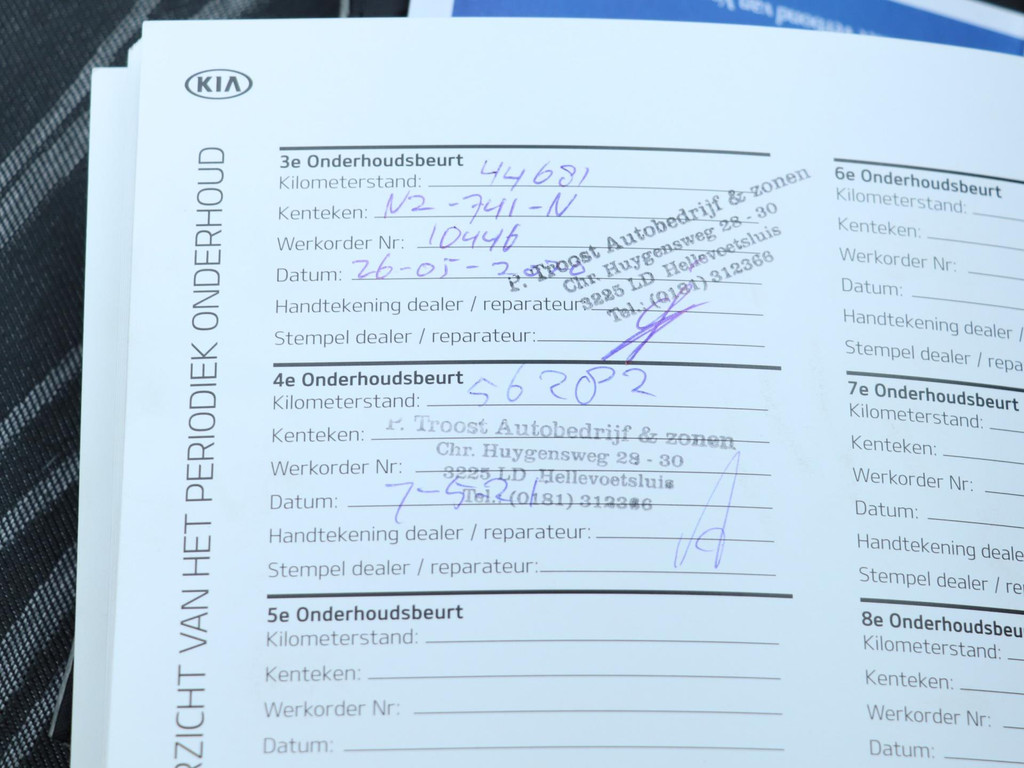 KIA
RZICHT VAN HET PERIODIEK ONDERHOUD
3e Onderhoudsbeurt
Kilometerstand: 44681
Kenteken: N2-741-N
Werkorder Nr: 10446
Datum: 26-05-2020
Handtekening dealer / reparateur:
Stempel dealer / reparateur:
P. Troost Autobedrijf & zonen
Chr. Huygensweg 28 - 30
3225 LD Hellevoetsluis
Tel.: (0181) 312366
4e Onderhoudsbeurt
Kilometerstand: 56202
Kenteken:
Werkorder Nr:
Datum: 7-5-21
Handtekening dealer / reparateur:
Stempel dealer / reparateur:
P. Troost Autobedrijf & zonen
Chr. Huygensweg 28 - 30
3225 LD Hellevoetsluis
Tel.: (0181) 312366
5e Onderhoudsbeurt
Kilometerstand:
Kenteken:
Werkorder Nr:
Datum:
6e Onderhoudsbeurt
Kilometerstand:
Kenteken:
Werkorder Nr:
Datum:
Handtekening dealer /
Stempel dealer / repa
7e Onderhoudsbeurt
Kilometerstand:
Kenteken:
Werkorder Nr:
Datum:
Handtekening deale
Stempel dealer / re
8e Onderhoudsbeu
Kilometerstand:
Kenteken:
Werkorder Nr:
Datum: